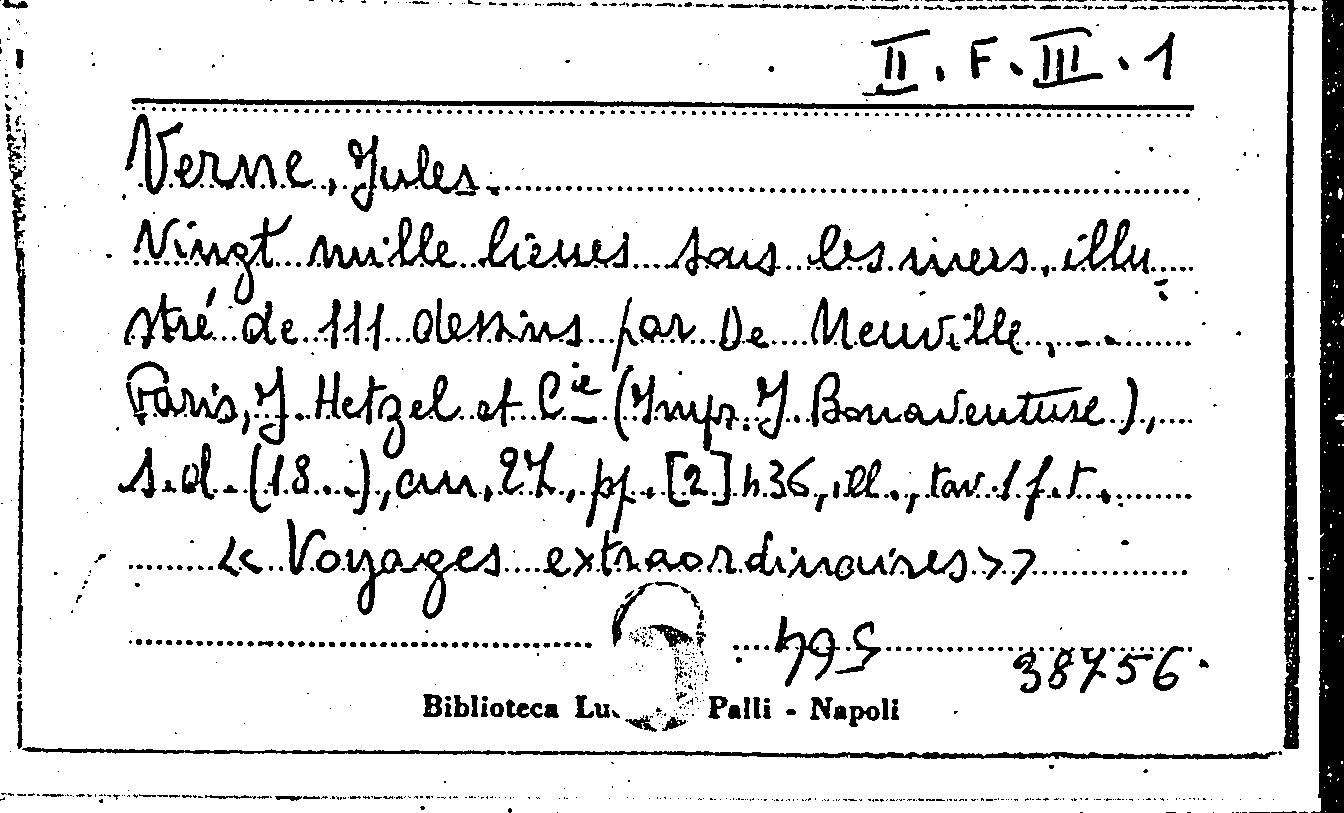 II. F. III. 1
Verne, Jules.
Vingt mille lieues sous les mers, illu-
stré de 111 dessins par De Neuville. --
Paris, J. Hetzel et Cie (Impr. J. Bonaventure),
s.d. (18...), cm. 27, pp. [2] 436, ill., tav. 1 f.t.
« Voyages extraordinaires »
564
38756
Biblioteca Palli - Napoli